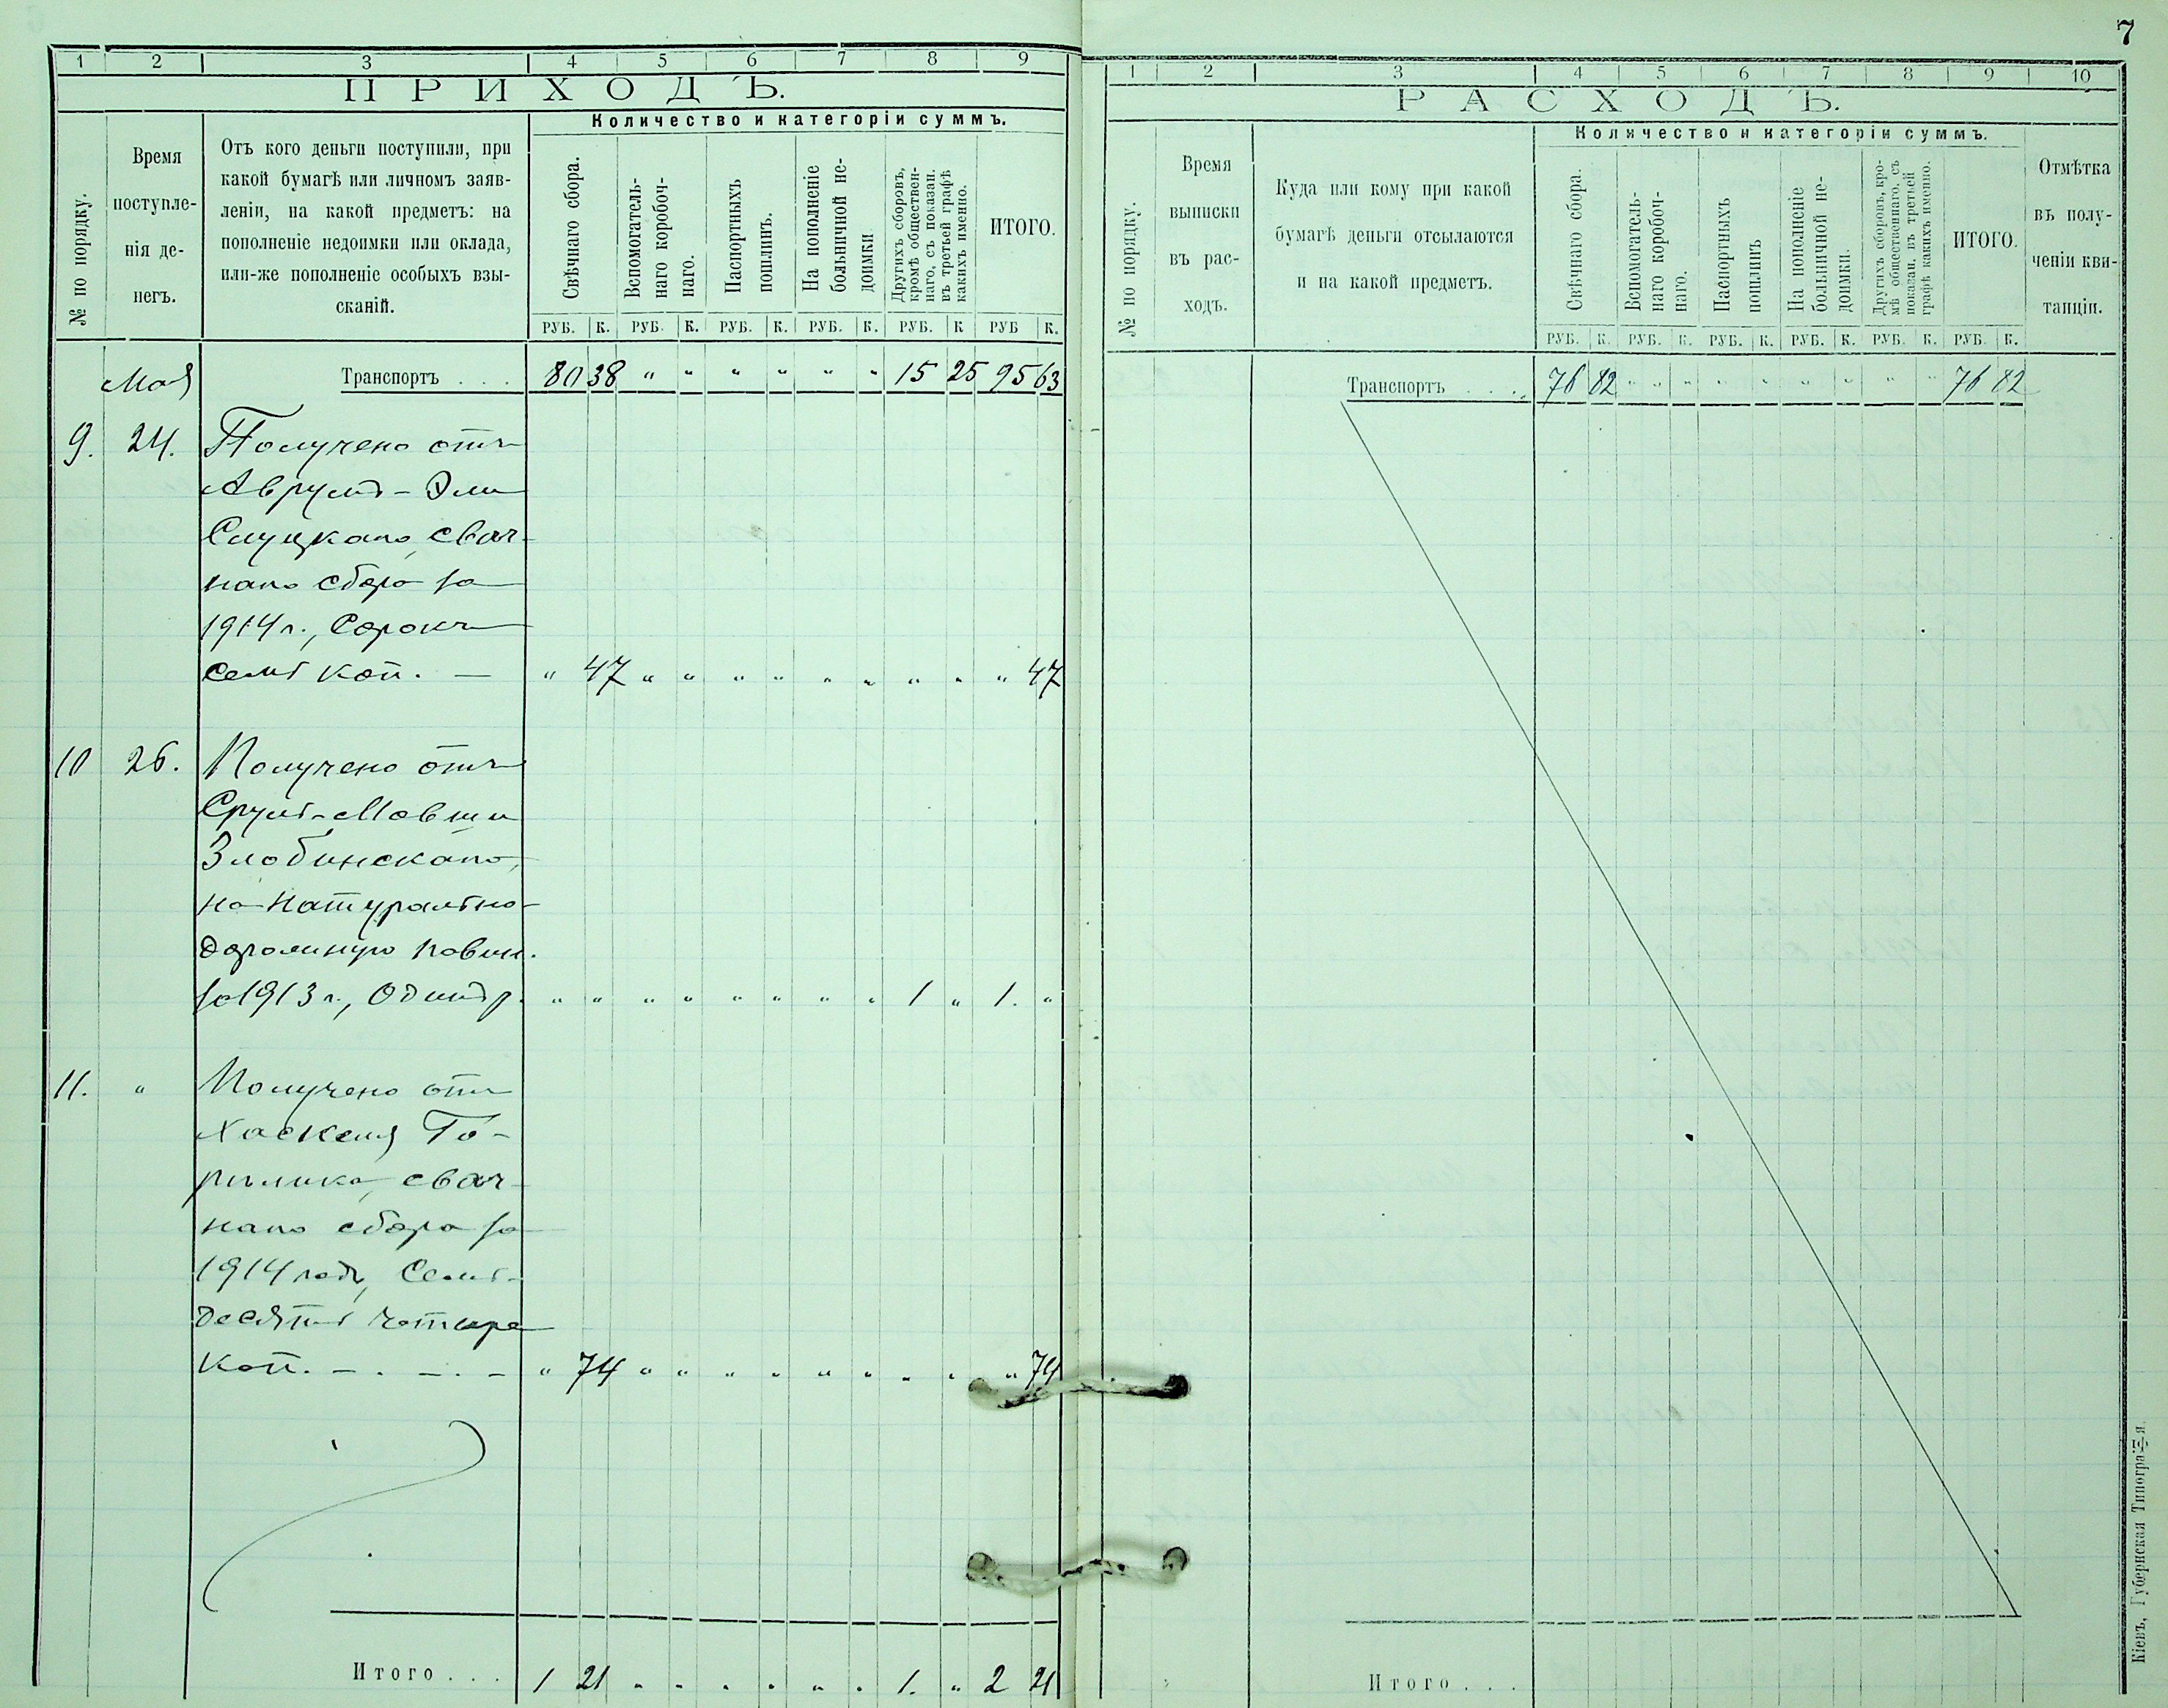 7
1 2 3 4 5 6 7 8 9
ПРИХОДЪ.
№ по порядку.
Время поступле-нія де-негъ.
Отъ кого деньги поступили, при
какой бумагѣ или личномъ заяв-
леніи, на какой предметъ: на
пополненіе недоимки или оклада,
или-же пополненіе особыхъ взы-
сканій.
Количество и категоріи суммъ.
Свѣчнаго сбора.
Вспомогатель-
наго коробоч-
наго.
Паспортныхъ
пошлинъ.
На пополненіе
больничной не-
доимки
Другихъ сборовъ,
кромѣ обществен-
наго, съ показан.
въ третьей графѣ
какихъ именно.
ИТОГО.
РУБ. К. РУБ. К. РУБ. К. РУБ. К. РУБ. К РУБ К.
Мая Транспортъ . . . 80 38 " " " " " " 15 25 95 63
9. 24. Получено отъ
Аврумъ-Эли
Слуцкаго, свѣч-
наго сбора за
1914 г., Сорокъ
семь коп. — " 47 " " " " " " " " " 47
10 26. Получено отъ
Срулъ-Мовши
Злобинскаго,
на натурально-
дорожную повин.
за 1913 г., Одинъ р. " " " " " " " " 1 " 1. "
11. " Получено отъ
Хаскеля
свѣч-
наго сбора за
1914 годъ, Семь-
десятъ четыре
коп. - . - . - " 74 " " " " " " " " " 74
Итого . . . 1 21 " " " " " " 1. " 2 21
1 2 3 4 5 6 7 8 9 10
РАСХОДЪ.
№ по порядку.
Время
выписки
въ рас-
ходъ.
Куда или кому при какой
бумагѣ деньги отсылаются
и на какой предметъ.
Количество и категоріи суммъ.
Свѣчнаго сбора.
Вспомогатель-
наго коробоч-
наго.
Паспортныхъ
пошлинъ
На пополненіе
больничной не-
доимки.
Другихъ сборовъ, кро-
мѣ общественнаго, съ
показан. въ третьей
графѣ какихъ именно.
ИТОГО.
Отмѣтка
въ полу-
ченіи кви-
танціи.
РУБ. К. РУБ. К. РУБ. К. РУБ. К. РУБ. К. РУБ. К.
Транспортъ . . . 76 82 " " " " " " " " 76 82
Итого . . .
Кіевъ, Губернская Типографія.